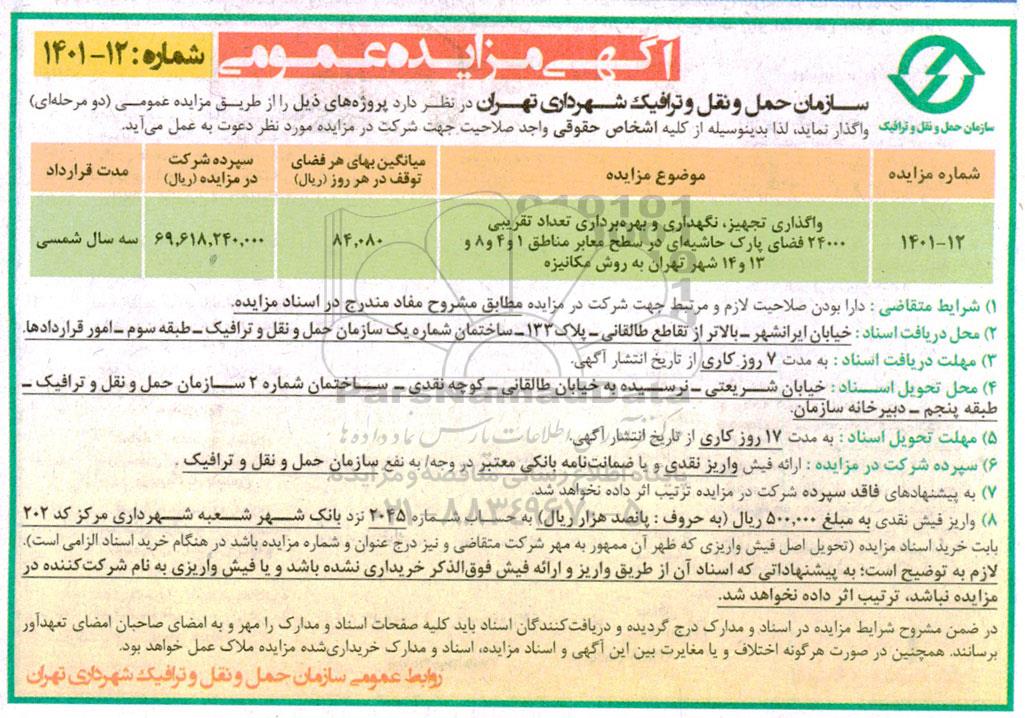 آگهی مزایده عمومی
شماره: ۱۲-۱۴۰۱
سازمان حمل و نقل و ترافیک
سازمان حمل و نقل و ترافیک شهرداری تهران در نظر دارد پروژه‌های ذیل را از طریق مزایده عمومی (دو مرحله‌ای)
واگذار نماید، لذا بدینوسیله از کلیه اشخاص حقوقی واجد صلاحیت جهت شرکت در مزایده مورد نظر دعوت به عمل می‌آید.
شماره مزایده
موضوع مزایده
میانگین بهای هر فضای
توقف در هر روز (ریال)
سپرده شرکت
در مزایده (ریال)
مدت قرارداد
۱۲-۱۴۰۱
واگذاری تجهیز، نگهداری و بهره‌برداری تعداد تقریبی
۲۴۰۰۰ فضای پارک حاشیه‌ای در سطح معابر مناطق ۱ و ۴ و ۸ و
۱۳ و ۱۴ شهر تهران به روش مکانیزه
۸۴,۰۸۰
۶۹,۶۱۸,۲۴۰,۰۰۰
سه سال شمسی
۱) شرایط متقاضی : دارا بودن صلاحیت لازم و مرتبط جهت شرکت در مزایده مطابق مشروح مفاد مندرج در اسناد مزایده.
۲) محل دریافت اسناد : خیابان ایرانشهر ـ بالاتر از تقاطع طالقانی ـ پلاک ۱۳۳ ـ ساختمان شماره یک سازمان حمل و نقل و ترافیک ـ طبقه سوم ـ امور قراردادها.
۳) مهلت دریافت اسناد : به مدت ۷ روز کاری از تاریخ انتشار آگهی.
۴) محل تحویل اسناد : خیابان شریعتی ـ نرسیده به خیابان طالقانی ـ کوچه نقدی ـ ساختمان شماره ۲ سازمان حمل و نقل و ترافیک ـ
طبقه پنجم ـ دبیرخانه سازمان.
۵) مهلت تحویل اسناد : به مدت ۱۷ روز کاری از تاریخ انتشار آگهی.
۶) سپرده شرکت در مزایده : ارائه فیش واریز نقدی و یا ضمانت‌نامه بانکی معتبر در وجه/ به نفع سازمان حمل و نقل و ترافیک .
۷) به پیشنهادهای فاقد سپرده شرکت در مزایده ترتیب اثر داده نخواهد شد.
۸) واریز فیش نقدی به مبلغ ۵۰۰,۰۰۰ ریال (به حروف : پانصد هزار ریال) به حساب شماره ۲۰۴۵ نزد بانک شهر شعبه شهرداری مرکز کد ۲۰۲
بابت خرید اسناد مزایده (تحویل اصل فیش واریزی که ظهر آن ممهور به مهر شرکت متقاضی و نیز درج عنوان و شماره مزایده باشد در هنگام خرید اسناد الزامی است).
لازم به توضیح است؛ به پیشنهاداتی که اسناد آن از طریق واریز و ارائه فیش فوق‌الذکر خریداری نشده باشد و یا فیش واریزی به نام شرکت‌کننده در
مزایده نباشد، ترتیب اثر داده نخواهد شد.
در ضمن مشروح شرایط مزایده در اسناد و مدارک درج گردیده و دریافت‌کنندگان اسناد باید کلیه صفحات اسناد و مدارک را مهر و به امضای صاحبان امضای تعهدآور
برسانند. همچنین در صورت هرگونه اختلاف و یا مغایرت بین این آگهی و اسناد مزایده، اسناد و مدارک خریداری‌شده مزایده ملاک عمل خواهد بود.
روابط عمومی سازمان حمل و نقل و ترافیک شهرداری تهران
ParsNamadData
۰۲۱-۸۸۳۴۹۶۷۰-۵